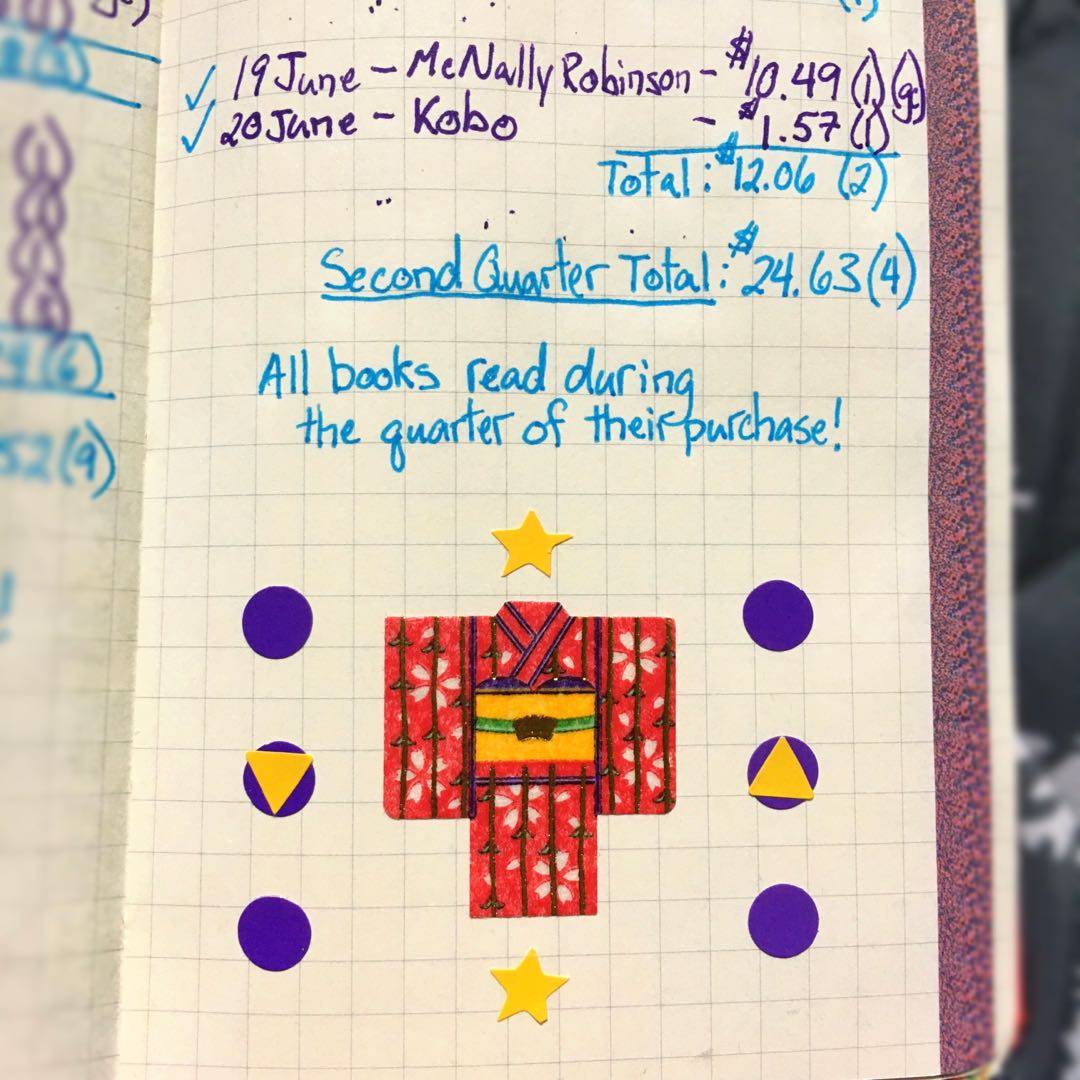 ✓ 19 June - McNally Robinson - $10.49 (1) (gc)
✓ 20 June - Kobo - $1.57 (1)
Total: $12.06 (2)
Second Quarter Total: $24.63 (4)
All books read during
the quarter of their purchase!